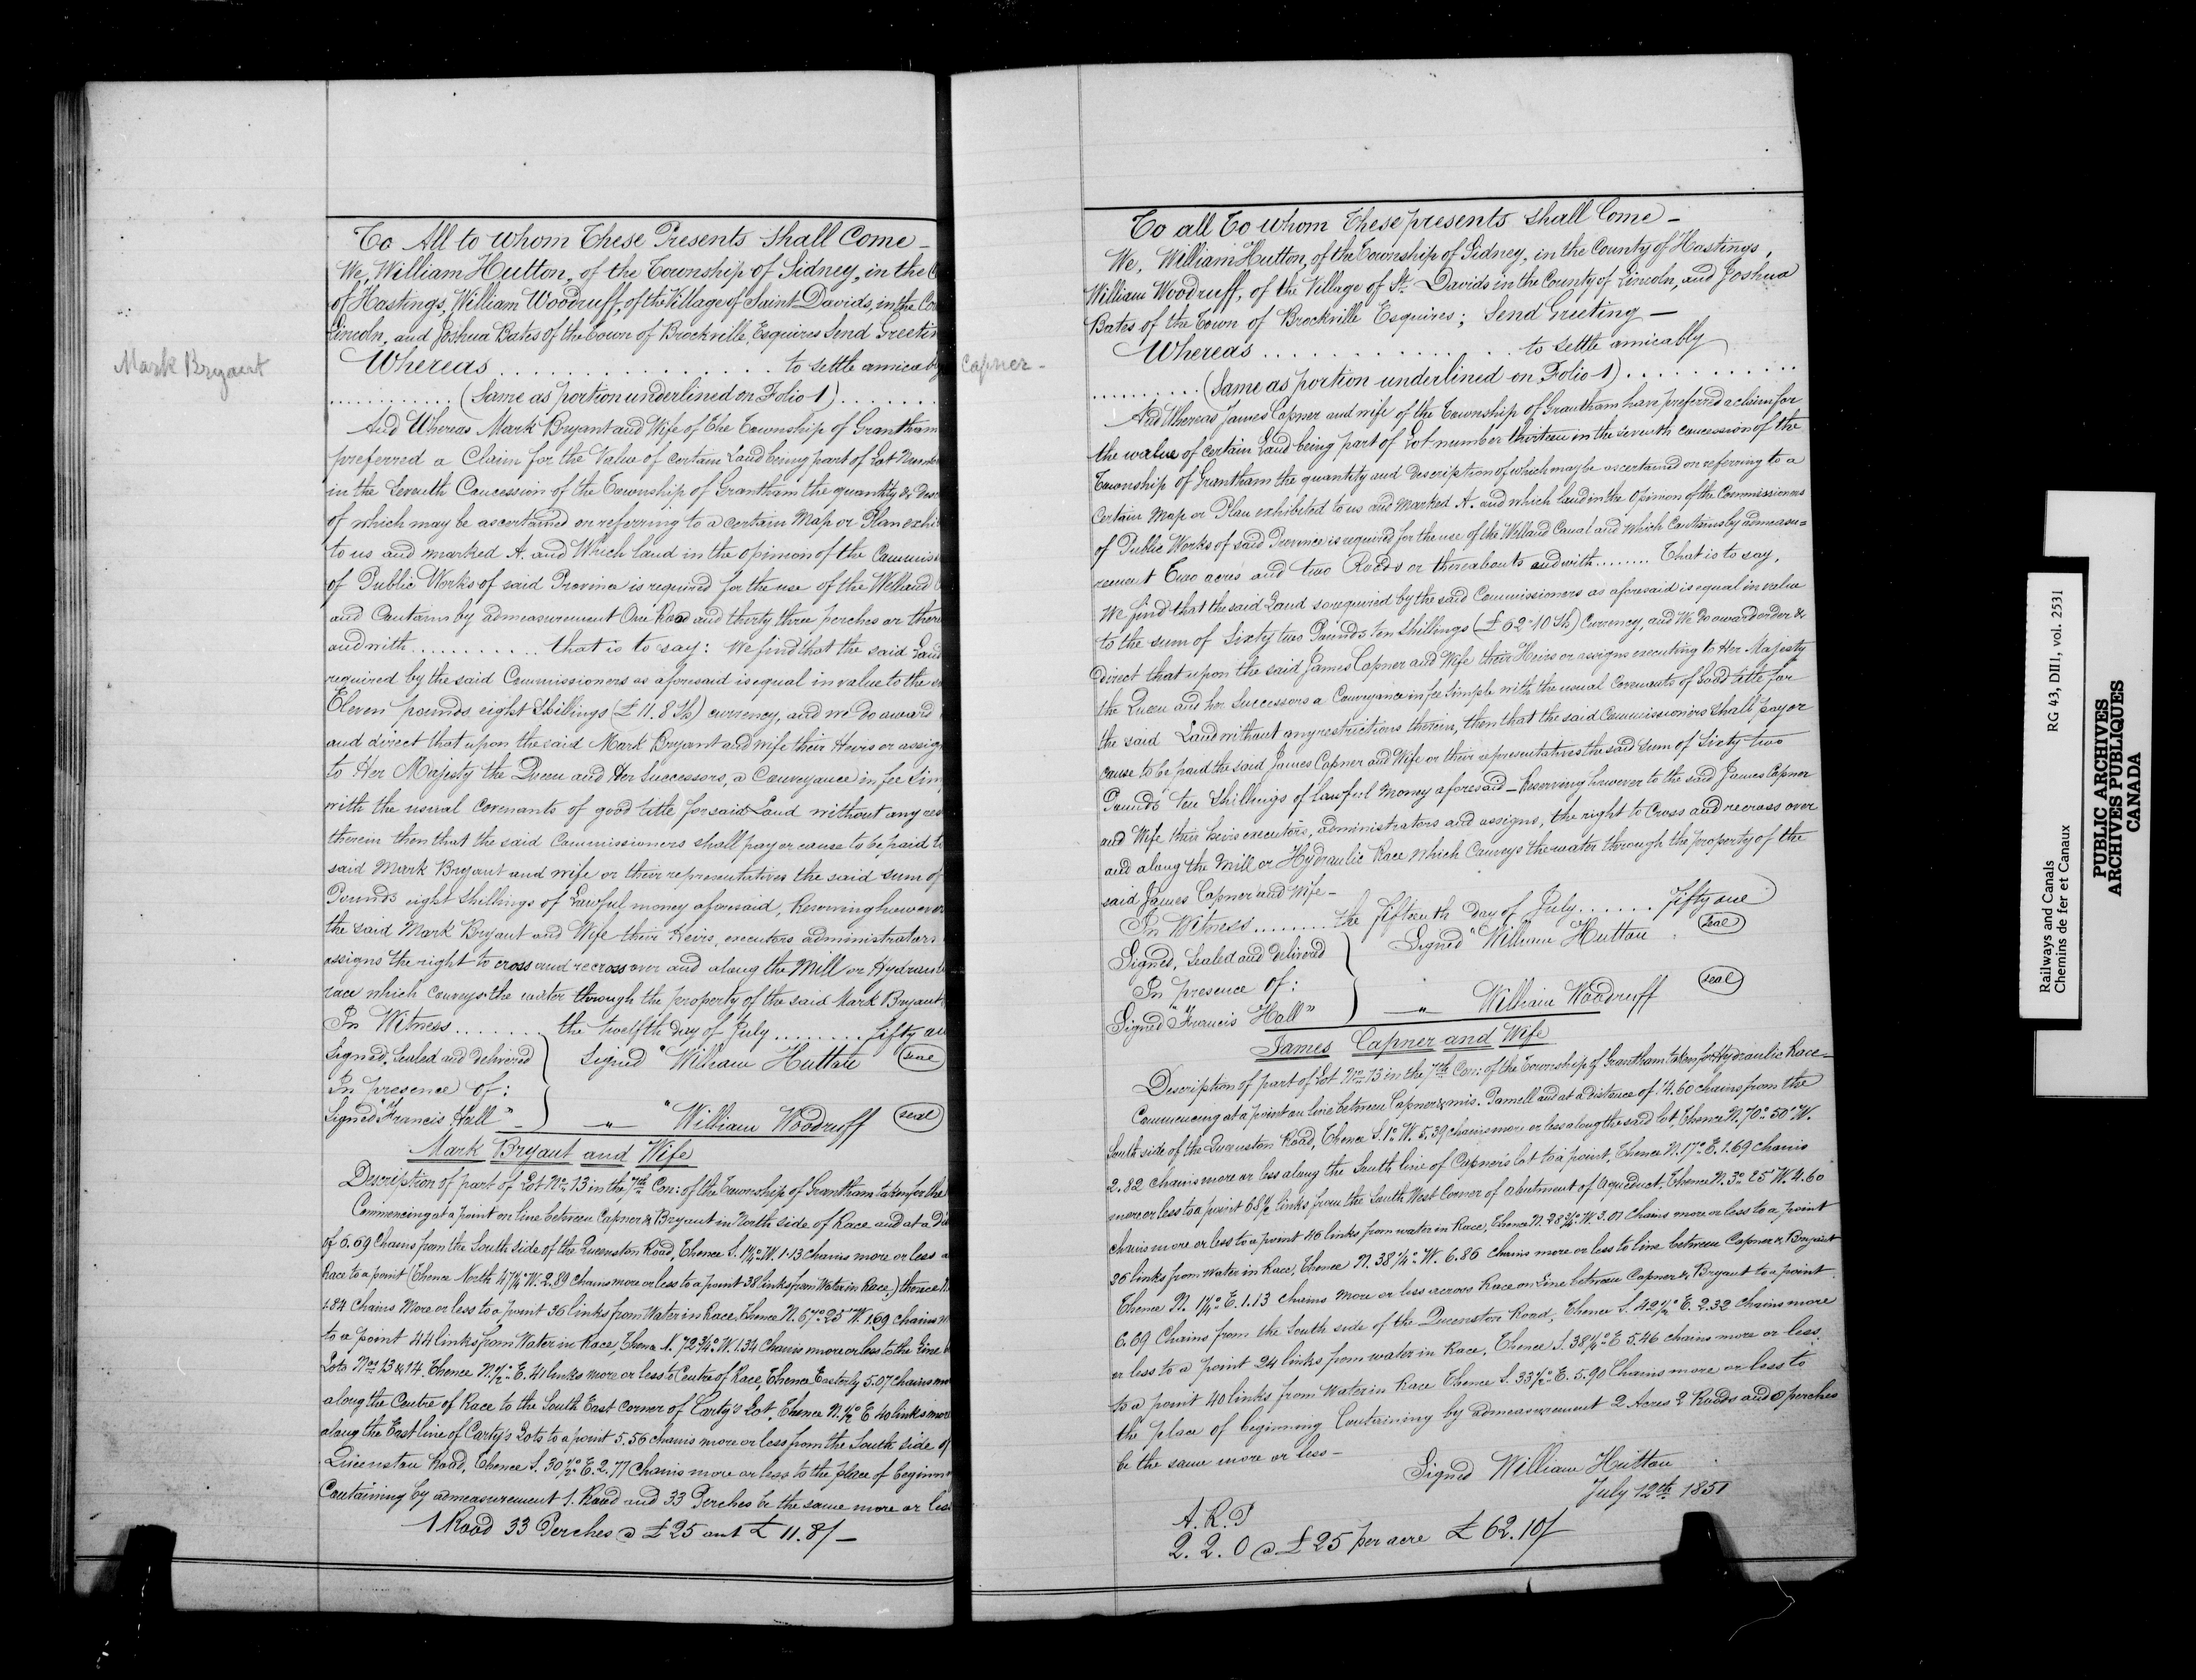 Mark Bryant
To All to whom These Presents Shall Come –
We, William Hutton, of the Township of Sidney, in the
of Hastings, William Woodruff, of the Village of Saint Davids, in the
Lincoln, and Joshua Bates of the Town of Brockville, Esquires Send Greetin
Whereas . . . . . . . . . . . . . . . to settle amicably
. . . . . . . . . . . (Same as portion underlined on Folio 1) . . . . . . .
And Whereas Mark Bryant and Wife of the Township of Grantham
preferred a Claim for the Value of certain Land being part of Lot Number
in the Seventh Concession of the Township of Grantham the quantity & desc
of which may be ascertained on referring to a certain Map or Plan exhi
to us and marked A. and Which land in the opinion of the Commiss
of Public Works of said Province is required for the use of the Welland
and Contains by admeasurement One Rood and thirty three perches or there
and with . . . . . . . . . . . that is to say: We find that the said Land
required by the said Commissioners as aforesaid is equal in value to the
Eleven pounds eight Shillings (£ 11.8 Sh) currency, and we do award
and direct that upon the said Mark Bryant and wife their Heirs or assig
to Her Majesty the Queen and Her Successors, a Conveyance in fee Sim
with the usual Covenants of good title for said Land without any res
therein then that the said Commissioners shall pay or cause to be paid t
said Mark Bryant and wife or their representatives the said sum of
Pounds eight Shillings of Lawful money aforesaid, Reserving however
the said Mark Bryant and Wife their Heirs, executors administrators
assigns the right to cross and recross over and along the Mill or Hydraul
race which Conveys the water through the property of the said Mark Bryant
In Witness . . . . . . . . the twelfth day of July . . . . . . . . fifty
Signed, Sealed and delivered } Signed "William Hutton (seal)
In presence of:
Signed "Francis Hall" – " – "William Woodruff (seal)
Mark Bryant and Wife
Description of part of Lot No 13 in the 7th Con: of the Township of Grantham taken for the
Commencing at a point on line between Capner & Bryant in North side of Race and at a
of 6.69 Chains from the South side of the Queenston Road, Thence S. 1¼° W. 1.13 chains more or less
Race to a point (Thence North 47¼° W. 2.89 Chains more or less to a point 38 links from Water in Race) thence
1.84 Chains More or less to a point 36 links from Water in Race Thence N. 67° 25' W. 1.69 chains
to a point 44 links from Water in Race, Thence N. 72¾° W. 1.34 Chains more or less to the Line
Lots Nos 13 & 14. Thence N. ½° E. 41 links more or less to Centre of Race, Thence Easterly 5.07 chains
along the Centre of Race to the South East Corner of Carty's Lot, Thence N. ½° E 40 links more
along the East line of Carty's Lots to a point 5.56 chains more or less from the South side of
Queenston Road, Thence S. 30½° E. 2.77 Chains more or less to the place of beginn
Containing by admeasurement 1. Rood and 33 Perches be the same more or less
1 Rood 33 Perches @ £25 amt £ 11.8/–
Capner –
To all To whom These presents Shall Come –
We, William Hutton, of the Township of Sidney, in the County of Hastings,
William Woodruff, of the Village of St. Davids in the County of Lincoln, and Joshua
Bates of the Town of Brockville Esquires; Send Greeting –
Whereas . . . . . . . . . . . . . . . to settle amicably
. . . . . . . . . (Same as portion underlined on Folio 1) . . . . . . . . . . .
And Whereas James Capner and wife of the Township of Grantham have preferred a claim for
the value of certain Land being part of Lot number thirteen in the seventh concession of the
Township of Grantham the quantity and description of which may be ascertained on referring to a
Certain Map or Plan exhibited to us and Marked A. and which land in the Opinion of the Commissioners
of Public Works of said Province is required for the use of the Welland Canal and which Contains by admeasu=
rement Two acres and two Roods or thereabouts and with . . . . . . . . That is to say,
We find that the said Land so required by the said Commissioners as aforesaid is equal in value
to the sum of Sixty two Pounds ten Shillings (£ 62-10 Sh) Currency, and We do award order &
direct that upon the said James Capner and Wife their Heirs or assigns executing to Her Majesty
the Queen and her Successors a Conveyance in fee Simple with the usual Covenants of Good title for
the said Land without any restrictions therein, then that the said Commissioners Shall pay or
cause to be paid the said James Capner and Wife or their representatives the said Sum of Sixty two
Pounds ten Shillings of lawful Money aforesaid – Reserving however to the said James Capner
and Wife their heirs executors, administrators and assigns, the right to Cross and recross over
and along the Mill or Hydraulic Race which Conveys the water through the property of the
said James Capner and Wife –
In Witness . . . . . . . . the fifteenth day of July . . . . . . . fifty one
Signed, Sealed and delivered } Signed "William Hutton (seal)
In presence of:
Signed "Francis Hall" – " – William Woodruff (seal)
James Capner and Wife
Description of part of Lot No 13 in the 7th Con: of the Township of Grantham taken for Hydraulic Race –
Commencing at a point on line between Capner & mis. Pamell and at a distance of 14.60 chains from the
South side of the Queenston Road, Thence S. 1° W. 5.39 chains more or less along the said lot, Thence N. 70° 50' W.
2.82 chains more or less along the South line of Capner's lot to a point, Thence N. 17° E. 1.69 chains
more or less to a point 68½ links from the South West Corner of abutment of Aqueduct, Thence N. 3° 25' W. 4.60
chains more or less to a point 46 links from water in Race, Thence N. 28¾° W. 3.01 Chains more or less to a point
36 links from Water in Race, Thence N. 38¼° W. 6.86 chains more or less to line between Capner & Bryant
Thence N. 1¼° E. 1.13 chains more or less across Race on Line between Capner & Bryant to a point
6.69 Chains from the South side of the Queenston Road, Thence S. 42½° E. 2.32 chains more
or less to a point 24 links from water in Race, Thence S. 38¼° E 5.46 chains more or less
to a point 40 links from Water in Race Thence S. 33½° E. 5.90 Chains more or less to
the place of beginning Containing by admeasurement 2 Acres 2 Roods and 0 perches
be the same more or less –
Signed William Hutton
July 12th 1851
A. R. P
2. 2. 0 @ £25 per acre £ 62.10/
Railways and Canals
Chemins de fer et Canaux
RG 43, DIII, vol. 2531
PUBLIC ARCHIVES
ARCHIVES PUBLIQUES
CANADA